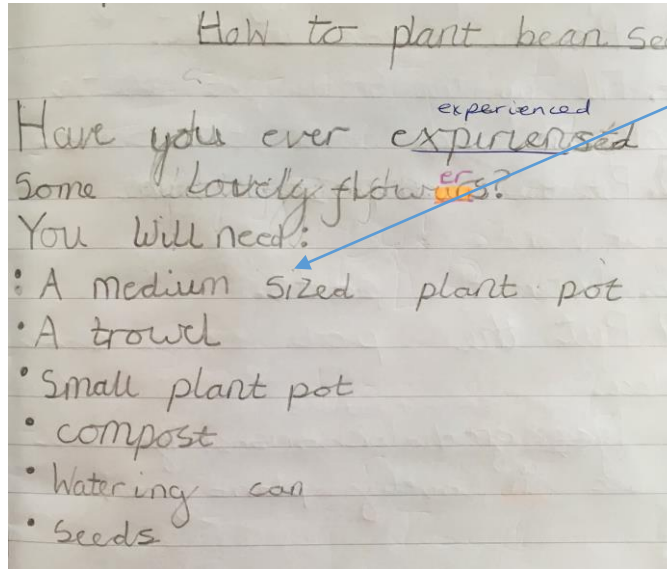 How to plant bean se
experienced
Have you ever expiriensed
er
Some lovely flowers?
You will need:
• A medium sized plant pot
• A trowel
• Small plant pot
• compost
• Watering can
• Seeds